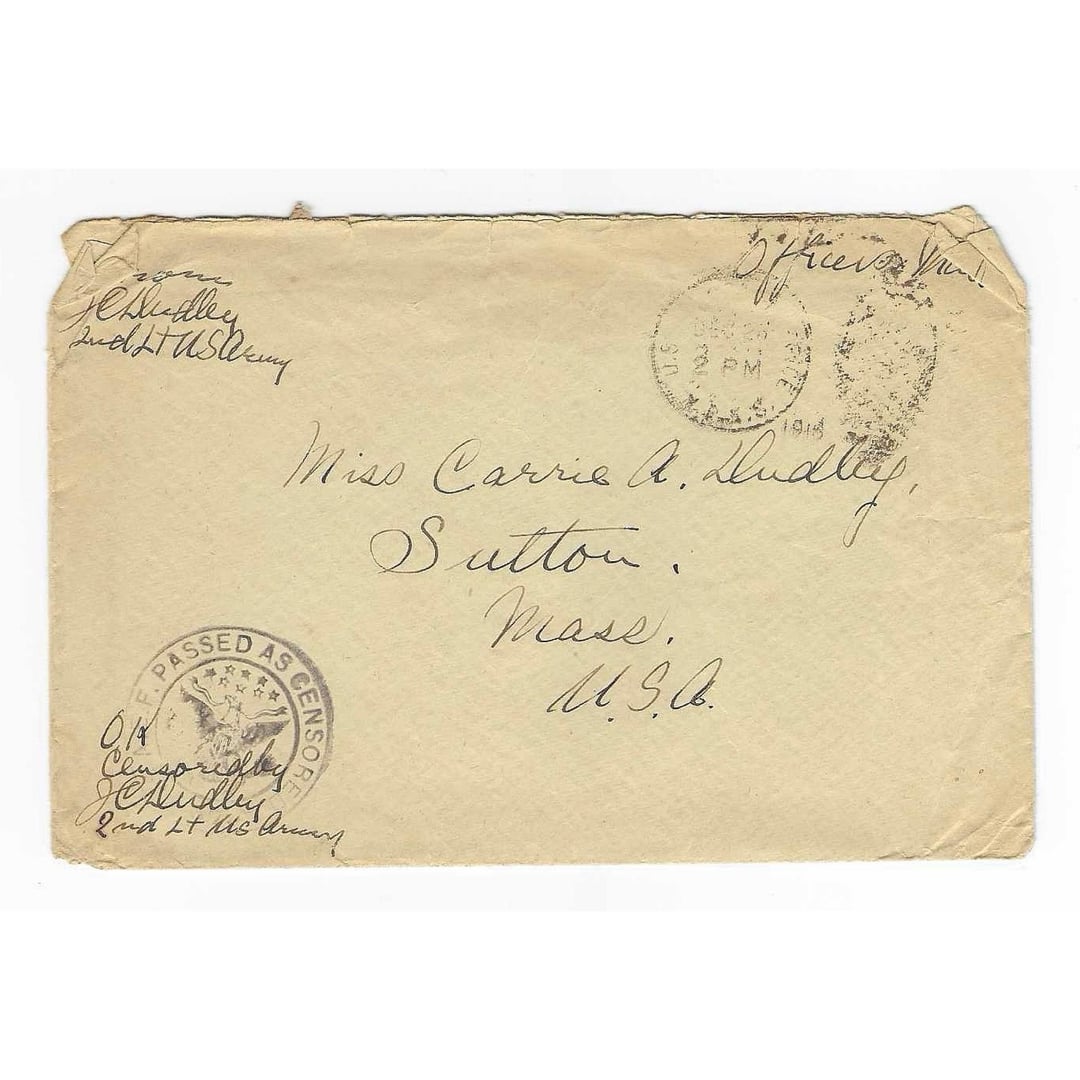 J C Dudley
2nd Lt US Army
Officers Mail
U.S.
2 PM
1918
Miss Carrie A. Dudley,
Sutton.
Mass.
U.S.A.
F. PASSED AS CENSORE
OK
Censored by
J C Dudley
2nd Lt US Army